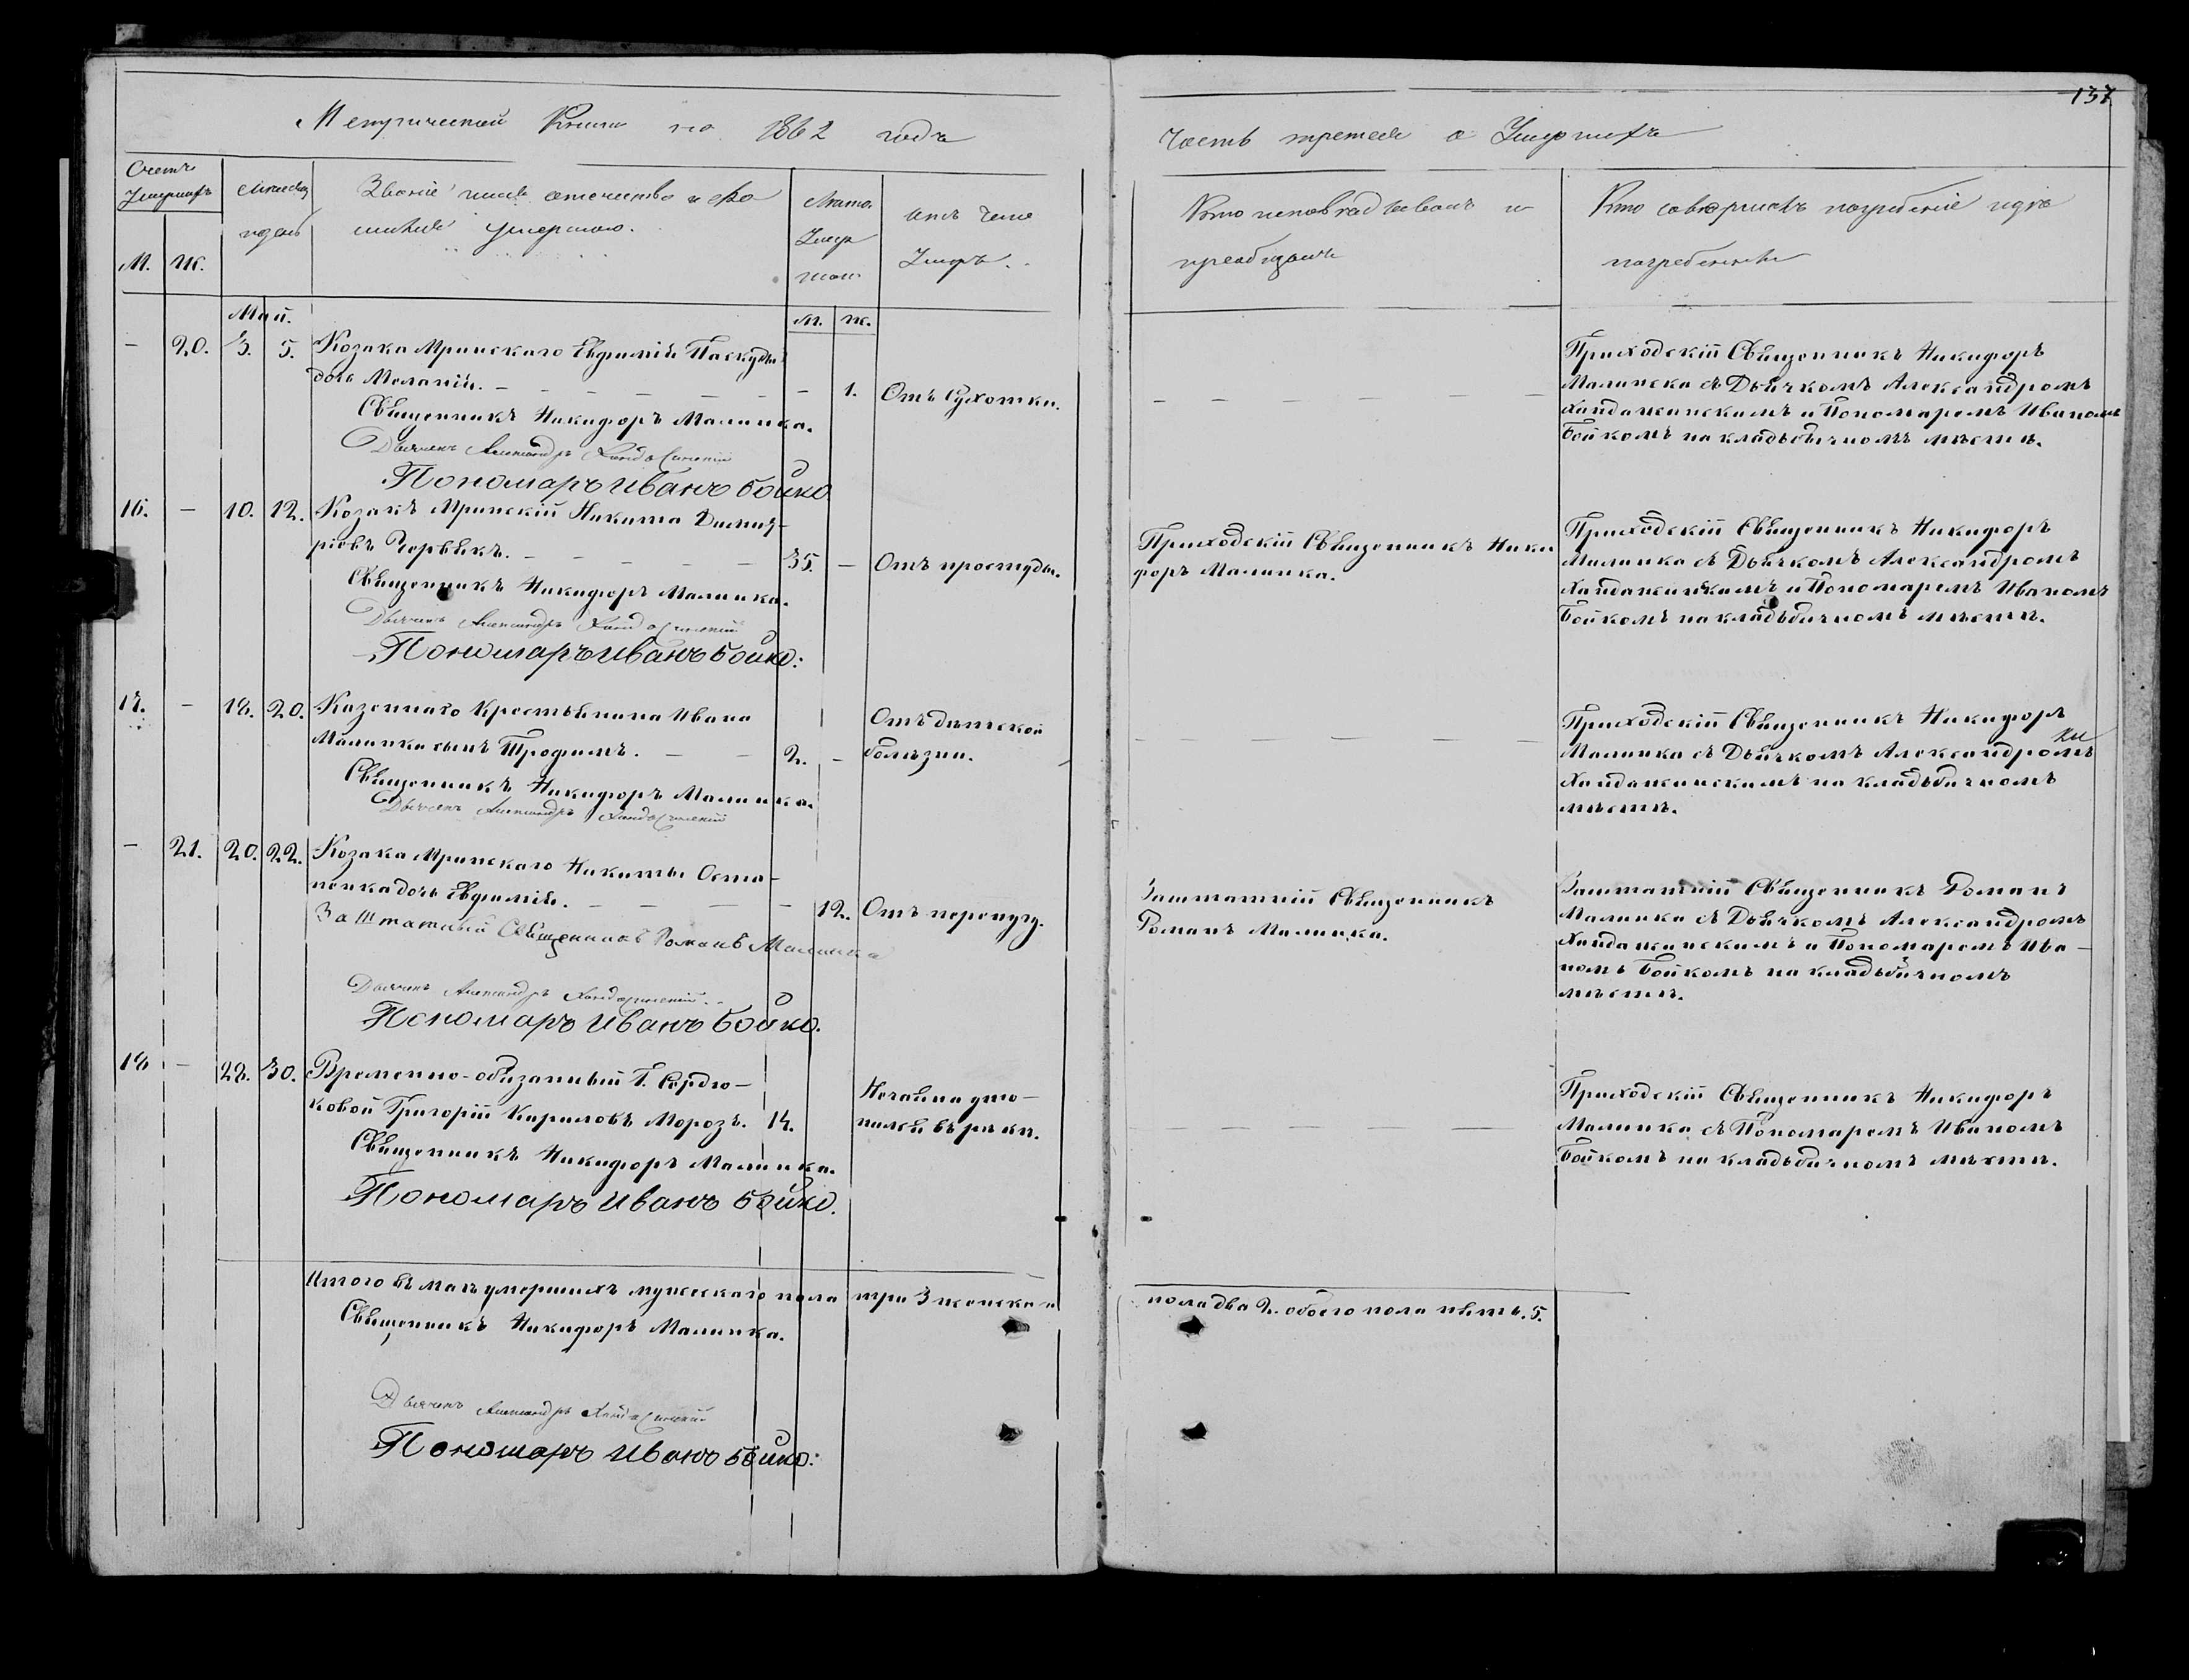 137
Метрической Книги на 1862 годъ
Часть третея о Умершихъ
Счетъ Умершихъ
М. Ж.
Месяцъ и день
Званіе имя отечество и фа
милія умершаго.
Лета Умер
шаго
М. Ж.
Отъ чего
Умеръ.
Кто исповѣдывалъ и
пріобщалъ
Кто совершалъ погребеніе и гдѣ
погребенъ
Май.
— 20. 3. 5. Козака Мринскаго Евфимія Паскуды
дочь Меланія. — — — — — — 1. Отъ сухотки.
Священникъ Никифоръ Малинка.
Дьячекъ Александръ Хандажинскій
Пономаръ Иванъ Бойко
— — — — — —
Приходскій Священникъ Никифоръ
Малинка съ Дьячкомъ Александромъ
Хандажинскимъ и Пономаремъ Иваномъ
Бойкомъ на кладьбичномъ мѣстѣ.
16. — 10. 12. Козакъ Мринскій Никита Димит-
ріевъ Червякъ. — — — — 35. — Отъ простуды.
Священникъ Никифоръ Малинка.
Дьячекъ Александръ Хандажинскій
Пономаръ Иванъ Бойко:
Приходскій Священникъ Ники
форъ Малинка.
Приходскій Священникъ Никифоръ
Малинка съ Дьячкомъ Александромъ
Хандажинскимъ и Пономаремъ Иваномъ
Бойкомъ на кладьбичномъ мѣстѣ.
17. — 18. 20. Казеннаго Крестьянина Ивана
Малинка сынъ Трофимъ. — — 2. —
Отъ дѣтской
болѣзни.
Священникъ Никифоръ Малинка.
Дьячекъ Александръ Хандажинскій
— — — — — —
Приходскій Священникъ Никифоръ
Малинка съ Дьячкомъ Александромъ
Хандажинскимъ на кладьбичномъ
мѣстѣ.
— 21. 20. 22. Козака Мринскаго Никиты Оста-
пенка дочь Евфимія. — — — — 12. Отъ перепугу.
ЗаШтатный Священникъ Романъ Малинка
Дьячекъ Александръ Хандажинскій.
Пономаръ Иванъ Бойко.
Заштатній Священникъ
Романъ Малинка.
Заштатній Священникъ Романъ
Малинка съ Дьячкомъ Александромъ
Хандажинскимъ и Пономаремъ Ива-
номъ Бойкомъ на кладьбичномъ
мѣстѣ.
18 — 28. 30. Временно-обязанный Г. Сердю-
ковой Григорій Кириловъ Морозъ. 14.
Нечайна уто-
пился въ рѣки.
Священникъ Никифоръ Малинка.
Пономаръ Иванъ Бойко.
— — — — — —
Приходскій Священникъ Никифоръ
Малинка съ Пономаремъ Иваномъ
Бойкомъ на кладьбичномъ мѣстѣ.
Итого въ маѣ умершихъ мужескаго пола три 3 женскаго
пола два 2. обоего пола пять. 5.
Священникъ Никифоръ Малинка.
Дьячекъ Александръ Хандажинскій
Пономаръ Иванъ Бойко: